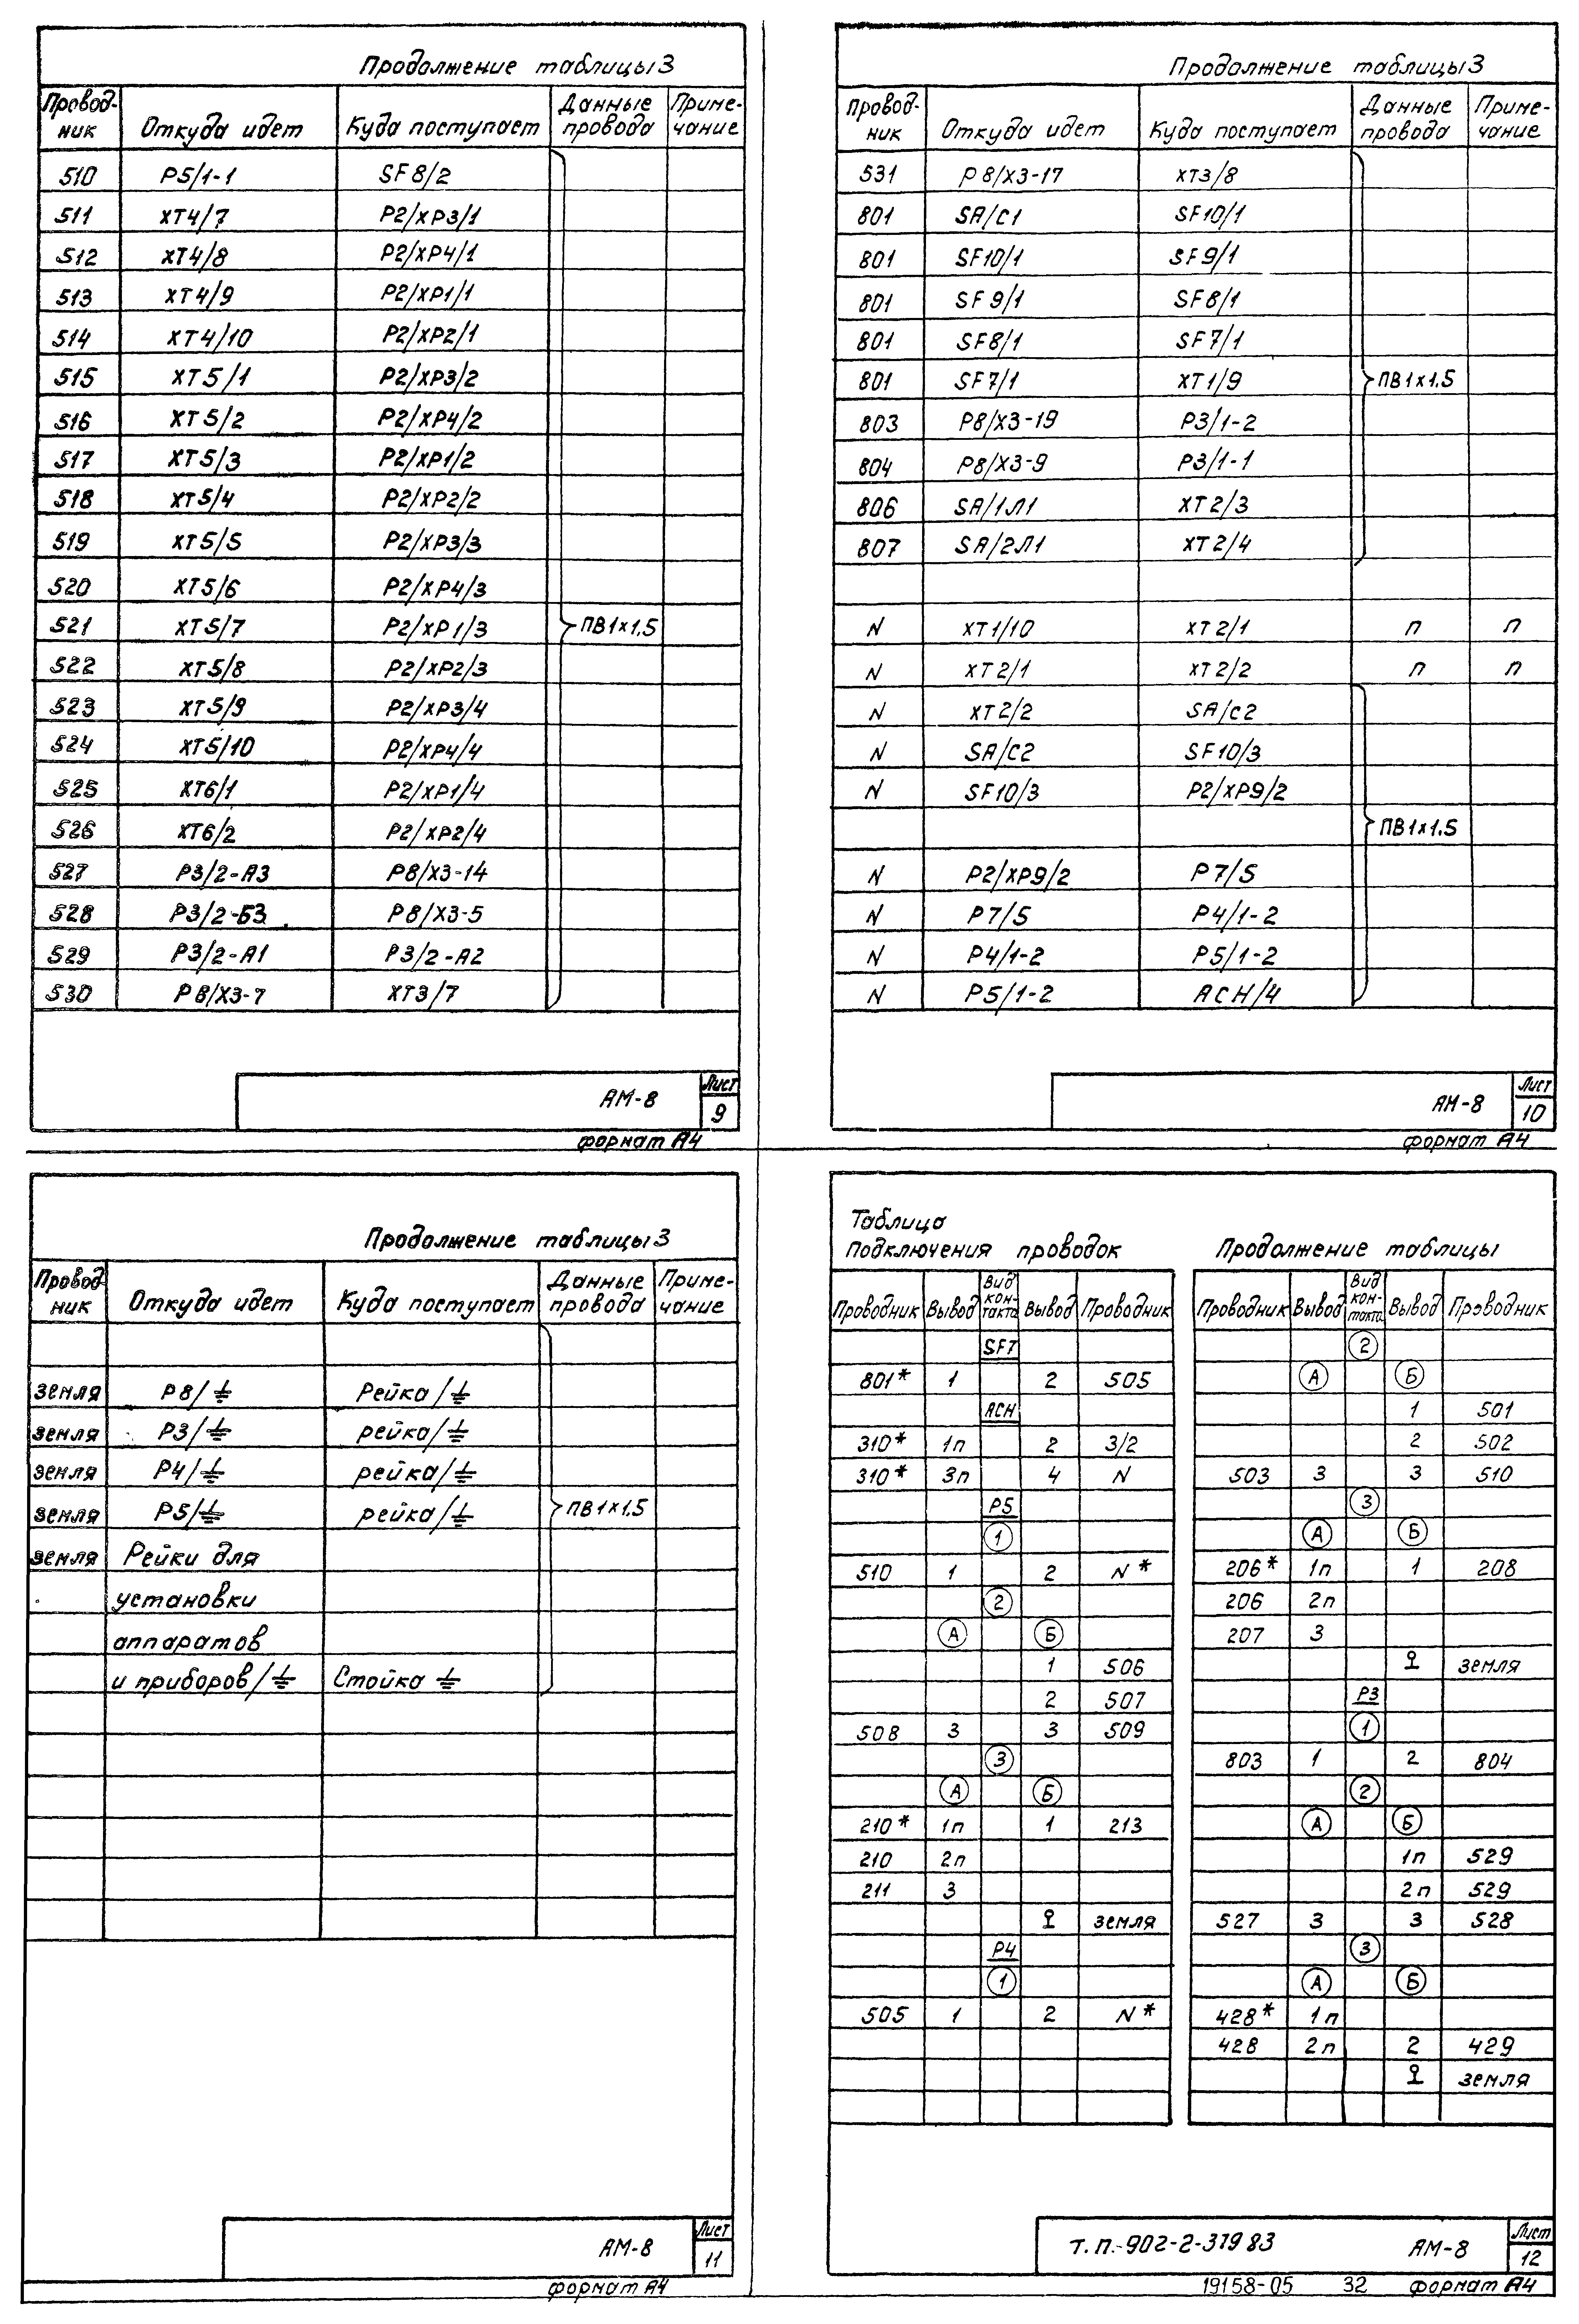 Продолжение таблицы 3
Провод- Откуда идет Куда поступает Данные Приме-
ник провода чание
510 Р5/1-1 SF8/2
511 ХТ4/7 Р2/ХР3/1
512 ХТ4/8 Р2/ХР4/1
513 ХТ4/9 Р2/ХР1/1
514 ХТ4/10 Р2/ХР2/1
515 ХТ5/1 Р2/ХР3/2
516 ХТ5/2 Р2/ХР4/2
517 ХТ5/3 Р2/ХР1/2
518 ХТ5/4 Р2/ХР2/2
519 ХТ5/5 Р2/ХР3/3
520 ХТ5/6 Р2/ХР4/3
521 ХТ5/7 Р2/ХР1/3 ПВ1х1.5
522 ХТ5/8 Р2/ХР2/3
523 ХТ5/9 Р2/ХР3/4
524 ХТ5/10 Р2/ХР4/4
525 ХТ6/1 Р2/ХР1/4
526 ХТ6/2 Р2/ХР2/4
527 Р3/2-А3 Р8/Х3-14
528 Р3/2-Б3 Р8/Х3-5
529 Р3/2-А1 Р3/2-А2
530 Р8/Х3-7 ХТ3/7
АМ-8
Лист
9
формат А4
Продолжение таблицы 3
Провод- Откуда идет Куда поступает Данные Приме-
ник провода чание
531 Р8/Х3-17 ХТ3/8
801 SA/C1 SF10/1
801 SF10/1 SF9/1
801 SF9/1 SF8/1
801 SF8/1 SF7/1
801 SF7/1 ХТ1/9 ПВ1х1.5
803 Р8/Х3-19 Р3/1-2
804 Р8/Х3-9 Р3/1-1
806 SA/1Л1 ХТ2/3
807 SA/2Л1 ХТ2/4
N ХТ1/10 ХТ2/1 п п
N ХТ2/1 ХТ2/2 п п
N ХТ2/2 SA/C2
N SA/C2 SF10/3
N SF10/3 Р2/ХР9/2
ПВ1х1.5
N Р2/ХР9/2 Р7/5
N Р7/5 Р4/1-2
N Р4/1-2 Р5/1-2
N Р5/1-2 АСН/4
АМ-8
Лист
10
формат А4
Продолжение таблицы 3
Провод- Откуда идет Куда поступает Данные Приме-
ник провода чание
земля Р8/⏚ Рейка/⏚
земля Р3/⏚ рейка/⏚
земля Р4/⏚ рейка/⏚
земля Р5/⏚ рейка/⏚ ПВ1х1.5
земля Рейки для
установки
аппаратов
и приборов/⏚ Стойка ⏚
АМ-8
Лист
11
формат А4
Таблица
подключения проводок
Проводник Вывод Вид кон- такта Вывод Проводник
SF7
801* 1 2 505
АСН
310* 1п 2 3/2
310* 3п 4 N
Р5
1
510 1 2 N*
2
А Б
1 506
2 507
508 3 3 509
3
А Б
210* 1п 1 213
210 2п
211 3
земля
Р4
1
505 1 2 N*
Продолжение таблицы
Проводник Вывод Вид кон- такта Вывод Проводник
2
А Б
1 501
2 502
503 3 3 510
3
А Б
206* 1п 1 208
206 2п
207 3
земля
Р3
1
803 1 2 804
2
А Б
1п 529
2п 529
527 3 3 528
3
А Б
428* 1п
428 2п 2 429
земля
т.п.-902-2-379 83 АМ-8
Лист
12
19158-05 32 формат А4